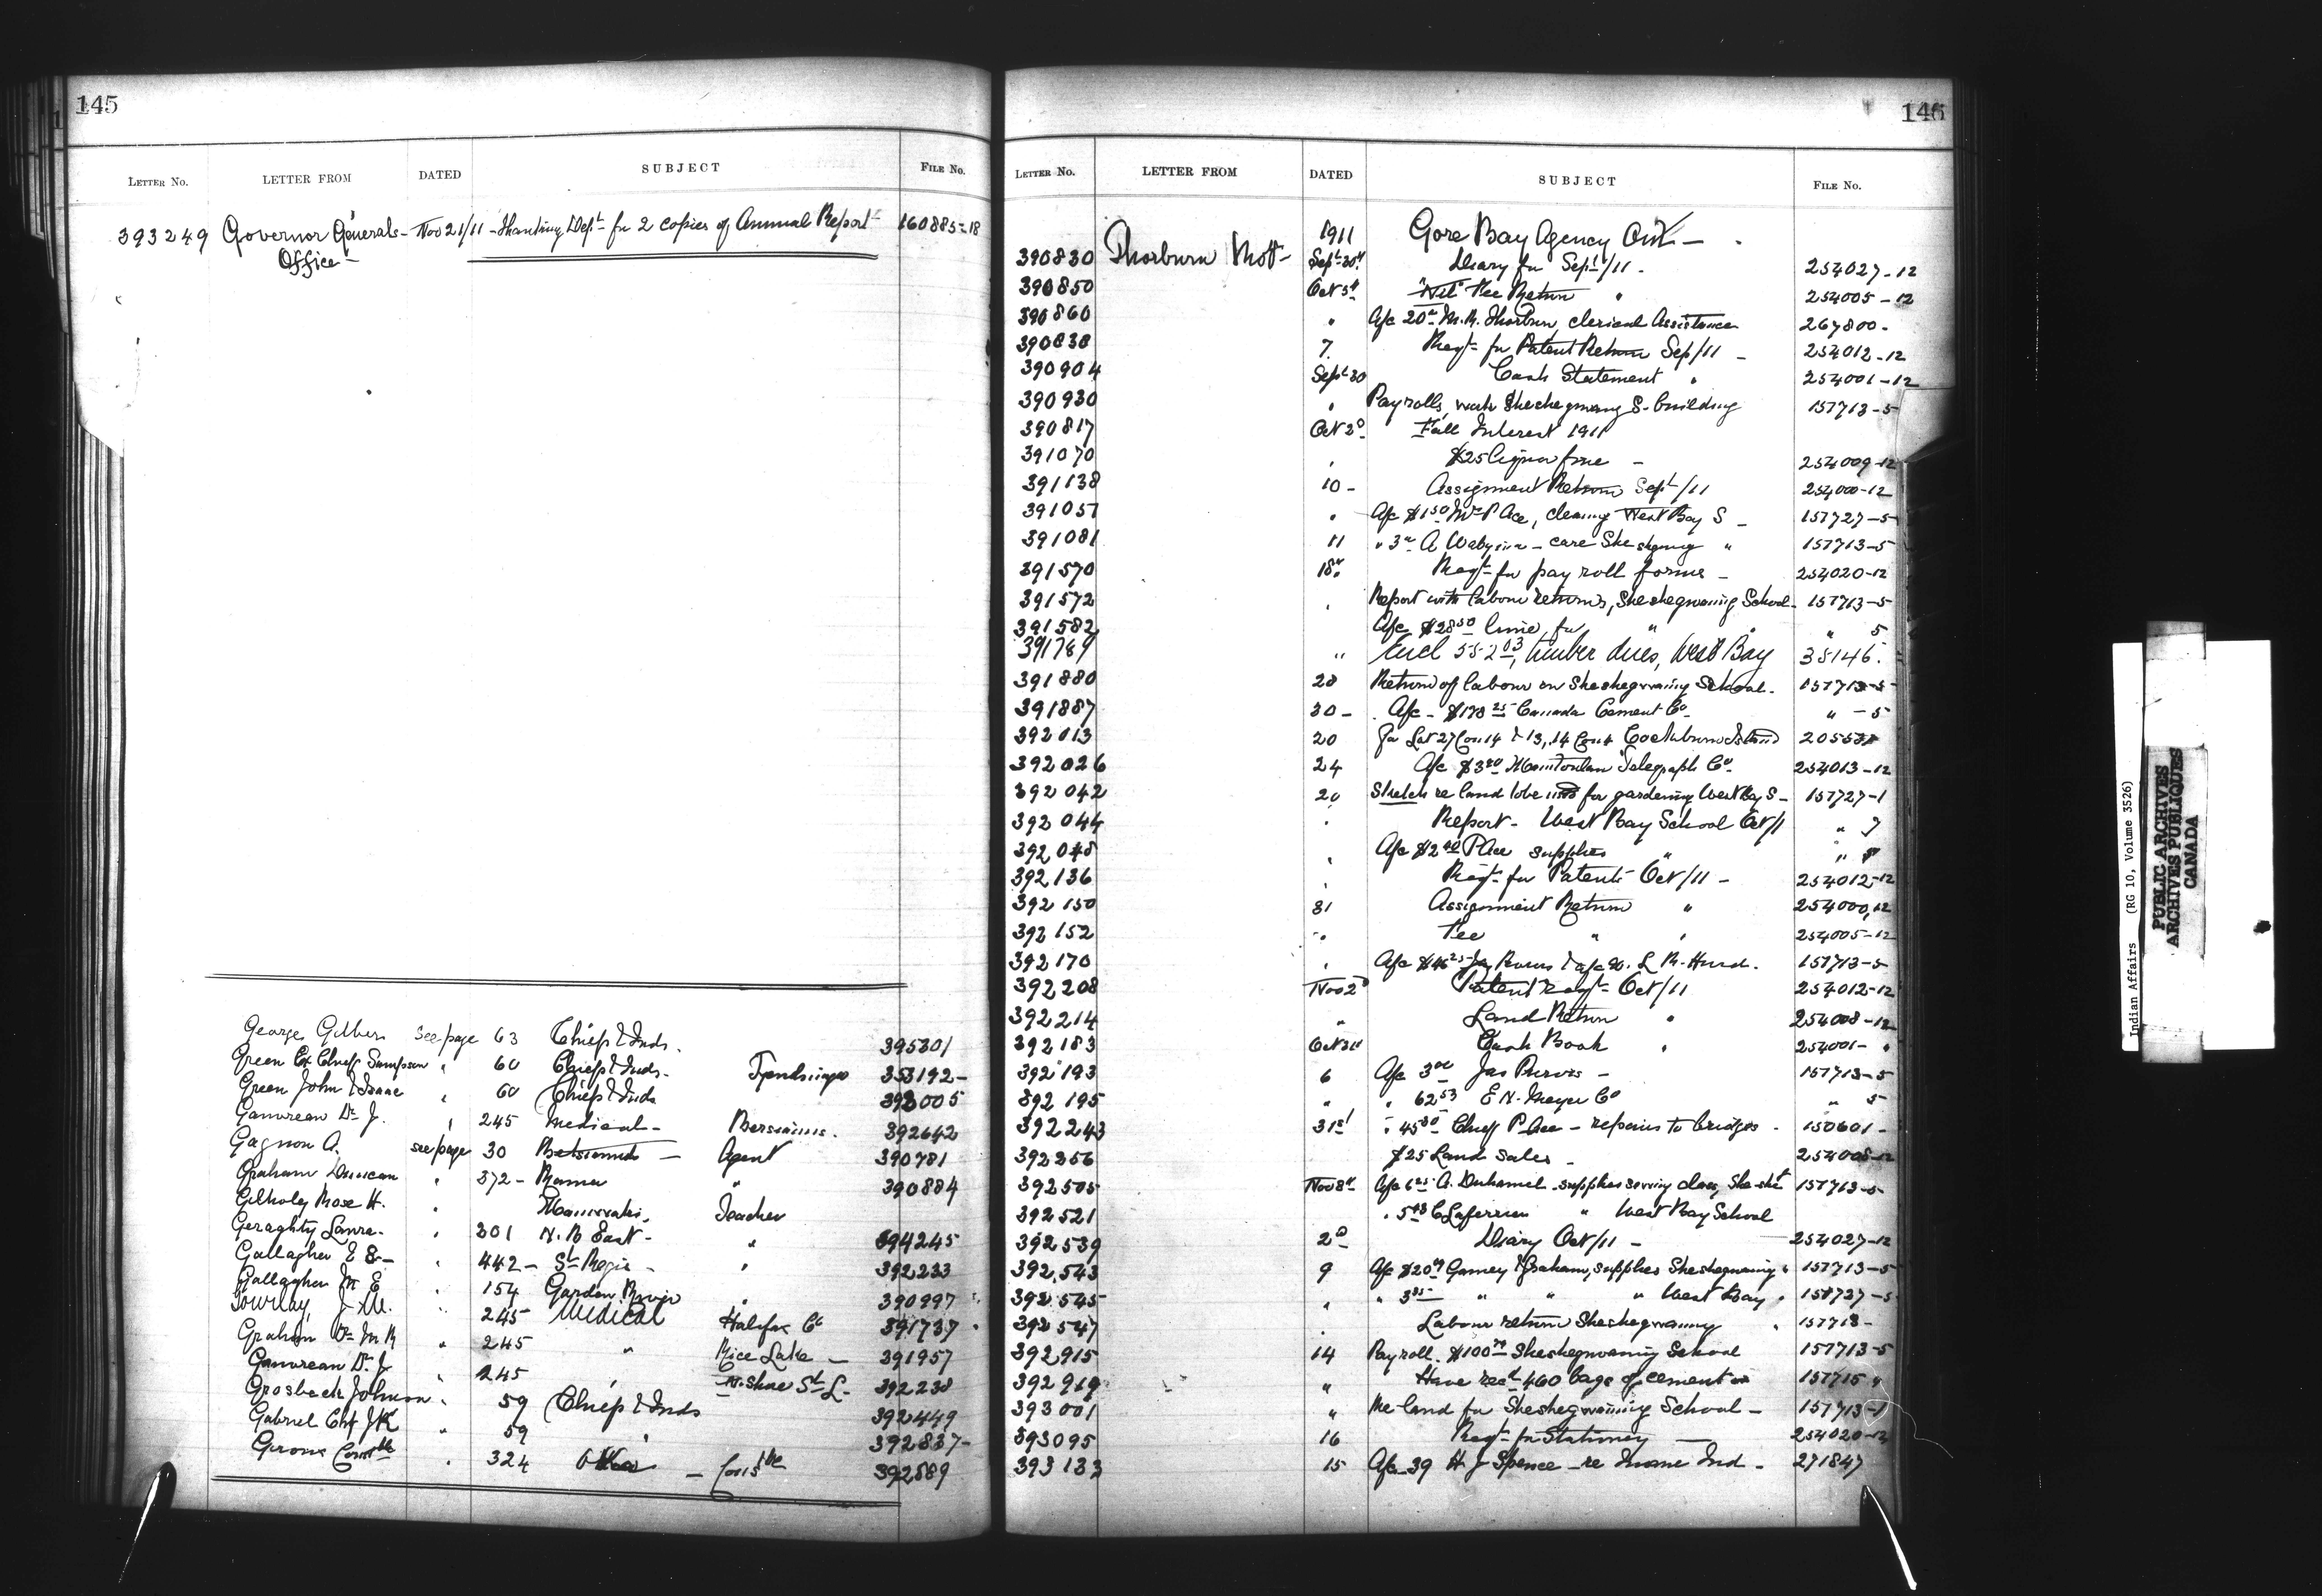 145
LETTER No. LETTER FROM DATED SUBJECT FILE No.
393249 Governor Generals - Nov 21/11 - Thanking Dept for 2 copies of Annual Report 160885-18
Office -
George Gilbert see page 63 Chief & Inds. 395301
Green Ex Chief Sampson " 60 Chief & Inds. 353192-
Green John & Isaac " 60 Chief & Inds 392005
Gauvreau Dr J. " 245 Medical - Bersimis. 392642
Gagnon A. see page 30 Betsiamits - Agent 390781
Graham Duncan " 372 - Rama " 390884
Gilhuly Rose H. " Teacher
Geraghty Laura - " 301 N. B East - " 394245
Gallagher E - " 442 - St Regis - " 392233
Gallagher M E " 154 Garden River 390997
J. W. " 245 Medical Halifax Co 391737
Graham Dr M R " 245 " Rice Lake - 391957
Gauvreau Dr J " 245 " N. Shore St L - 392238
Grosbeck Johnson " 59 Chief & Inds 392449
Gabriel Chf J K " 59 " 392837-
Geroux " 324 Oka - Consble 392589
146
LETTER No. LETTER FROM DATED SUBJECT FILE No.
1911 Gore Bay Agency Ont -
390830 Thorburn Robt - Sept 30th Diary for Sept/11 - 254027-12
390850 Oct 5th "Nil" Fee Return " 254005-12
390860 " A/c 20 M. R. Thorburn, clerical Assistance 267800-
390838 7. Reqt for Patent Return Sep/11 - 254012-12
390904 Sept 30 Cash Statement " 254001-12
390930 " Payrolls, work Sheshegwaning S. building 157713-5
390817 Oct 2d Fall Interest 1911
391070 " $25 liquor fine - 254009-12
391138 10 - Assignment Return Sept/11 254000-12
391057 " A/c $1.50 Mrs P Ace, cleaning West Bay S - 157727-5
391081 11 " 3 A - care Sheshegwg " 157713-5
391570 18th Reqt for pay roll forms - 254020-12
391572 " Report with labour returns, Sheshegwaning School - 157713-5
391582 " A/c $28.50 lime for " " " 5
391789 " Encl 552.03, timber dues, West Bay 38146.
391880 28 Return of labour on Sheshegwaning School - 157713-5
391887 30 - A/c - $178.25 Canada Cement Co - " - 5
392013 20 For Lot 27 Con 14 & 13, 14 Con 4 Cockburn Island
392026 24 A/c $3.20 Manitoulin Telegraph Co - 254013-12
392042 20 Sketch re land to be used for gardening West Bay S - 157727-1
392044 " Report - West Bay School Oct/11 " 7
392048 " A/c $2.40 P Ace supplies "
392136 " Reqt for Patents Oct/11 - 254012-12
392150 31 Assignment Return " 254000,12
392152 " Fee " " 254005-12
392170 " A/c $46.25 Jas Purvis & A/c 20. L R. Hurd. 157713-5
392208 Nov 2d Patent reqt - Oct/11 254012-12
392214 " Land Return " 254008-12
392183 Oct 31st Cash Book " 254001- "
392193 6 A/c 3.00 Jas Purvis - 157713-5
392195 " " 62.53 E N. Meyer Co " 5
392243 31st " 45.30 Chief P Ace - repairs to bridges - 150601-
392256 $25 Land sales - 254008-12
392505 Nov 8th A/c 6.25 A. Duhamel - supplies sewing class, She-she 157713-5
392521 " 5.48 C Laferriere " West Bay School
392539 2d - Diary Oct/11 - 254027-12
392543 9 A/c $20 Gamey & Graham, supplies Sheshegwaning " 157713-5
392545 " " " " " West Bay " 157727-5
392547 " Labour return Sheshegwaning " 157713-
392915 14 Payroll - $100 Sheshegwaning School 157713-5
392919 " Have recd 460 bags of cement 157715 "
393001 " Re land for Sheshegwaning School - 157713-1
393095 16 Reqt for Stationery - 254020-12
393133 15 A/c 39 H J Spence - re Insane Ind - 271847
Indian Affairs (RG 10, Volume 3526)
PUBLIC ARCHIVES
ARCHIVES PUBLIQUES
CANADA